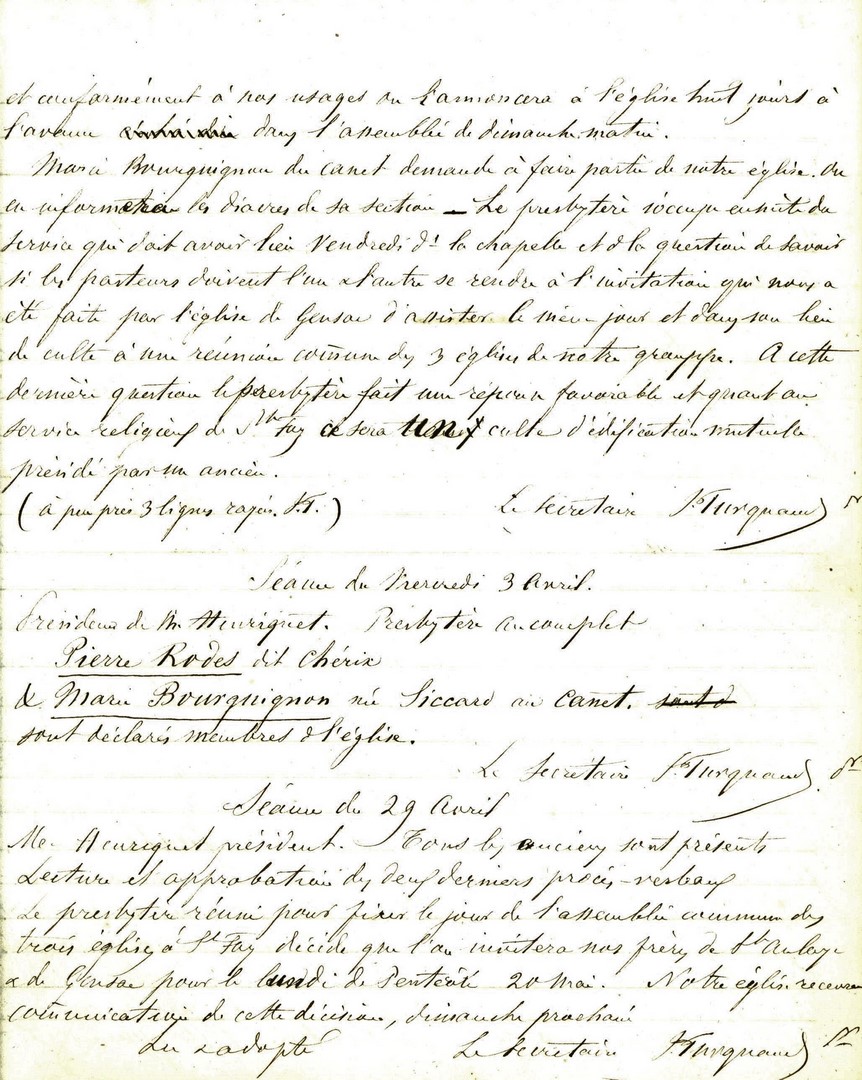 et conformément à nos usages on l'annoncera à l'église huit jours à
l'avance dans l'assemblée de dimanche matin.
Marie Bourguignon du Canet demande à faire partie de notre église. On
en informera les diacres de sa section _ Le presbytère s'occupe ensuite du
service qui doit avoir lieu Vendredi ds la chapelle et d la question de savoir
si les pasteurs doivent l'un & l'autre se rendre à l'invitation qui nous a
été faite par l'église de Gensac d'assister le même jour et dans son lieu
de culte à une réunion commune des 3 églises de notre grouppe. A cette
dernière question le presbytère fait une réponse favorable et quant au
service religieux de Ste Foy ce sera un culte d'édification mutuelle
présidé par un ancien.
( à peu près 3 lignes rayés. J.T. ) Le secrétaire J. Turquand
Séance du Mercredi 3 Avril.
Présidence de Mr Henriquet. Presbytère au complet
Pierre Rodes dit Chérix
& Marie Bourguignon née Siccard au Canet.
sont déclarés membres d l'église.
Le Secrétaire J. Turquand
Séance du 29 Avril
Mr Henriquet président. Tous les anciens sont présents
Lecture et approbation des deux derniers procès-verbaux
Le presbytère réuni pour fixer le jour de l'assemblée commune des
trois églises à St Foy décide que l'on invitera nos frères de Ste Aulaye
& de Gensac pour le lundi de Pentecôte 20 mai. Notre église recevra
communication de cette décision, dimanche prochain
Lu & adopté Le Secrétaire J. Turquand